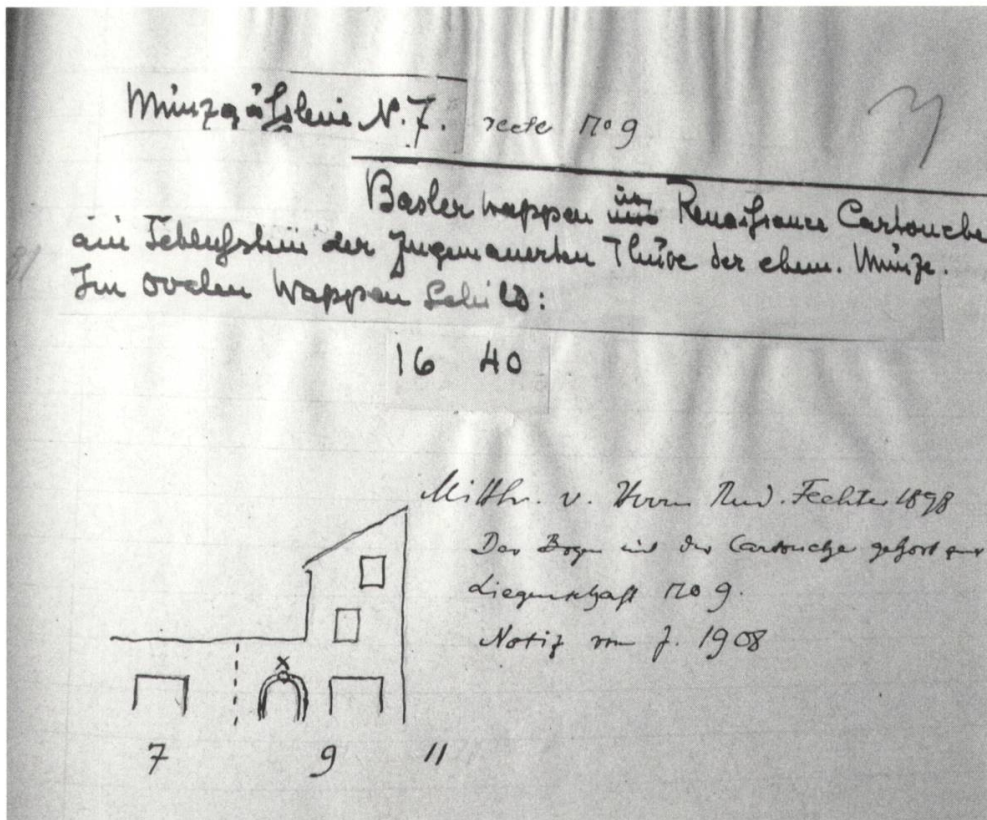 Münzgässlein N. 7. recte No 9
Basler wappen in Renaissance Cartouche
am Schlussstein der zugemauerten Thüre der ehem. Münze.
Im ovalen Wappen Schild:
16 40
Mitthr. v. Herrn Rud. Fechter 1898
Der Bogen mit der Cartouche gehört zur
Liegenschaft No 9.
Notiz vom J. 1908
7 9 11